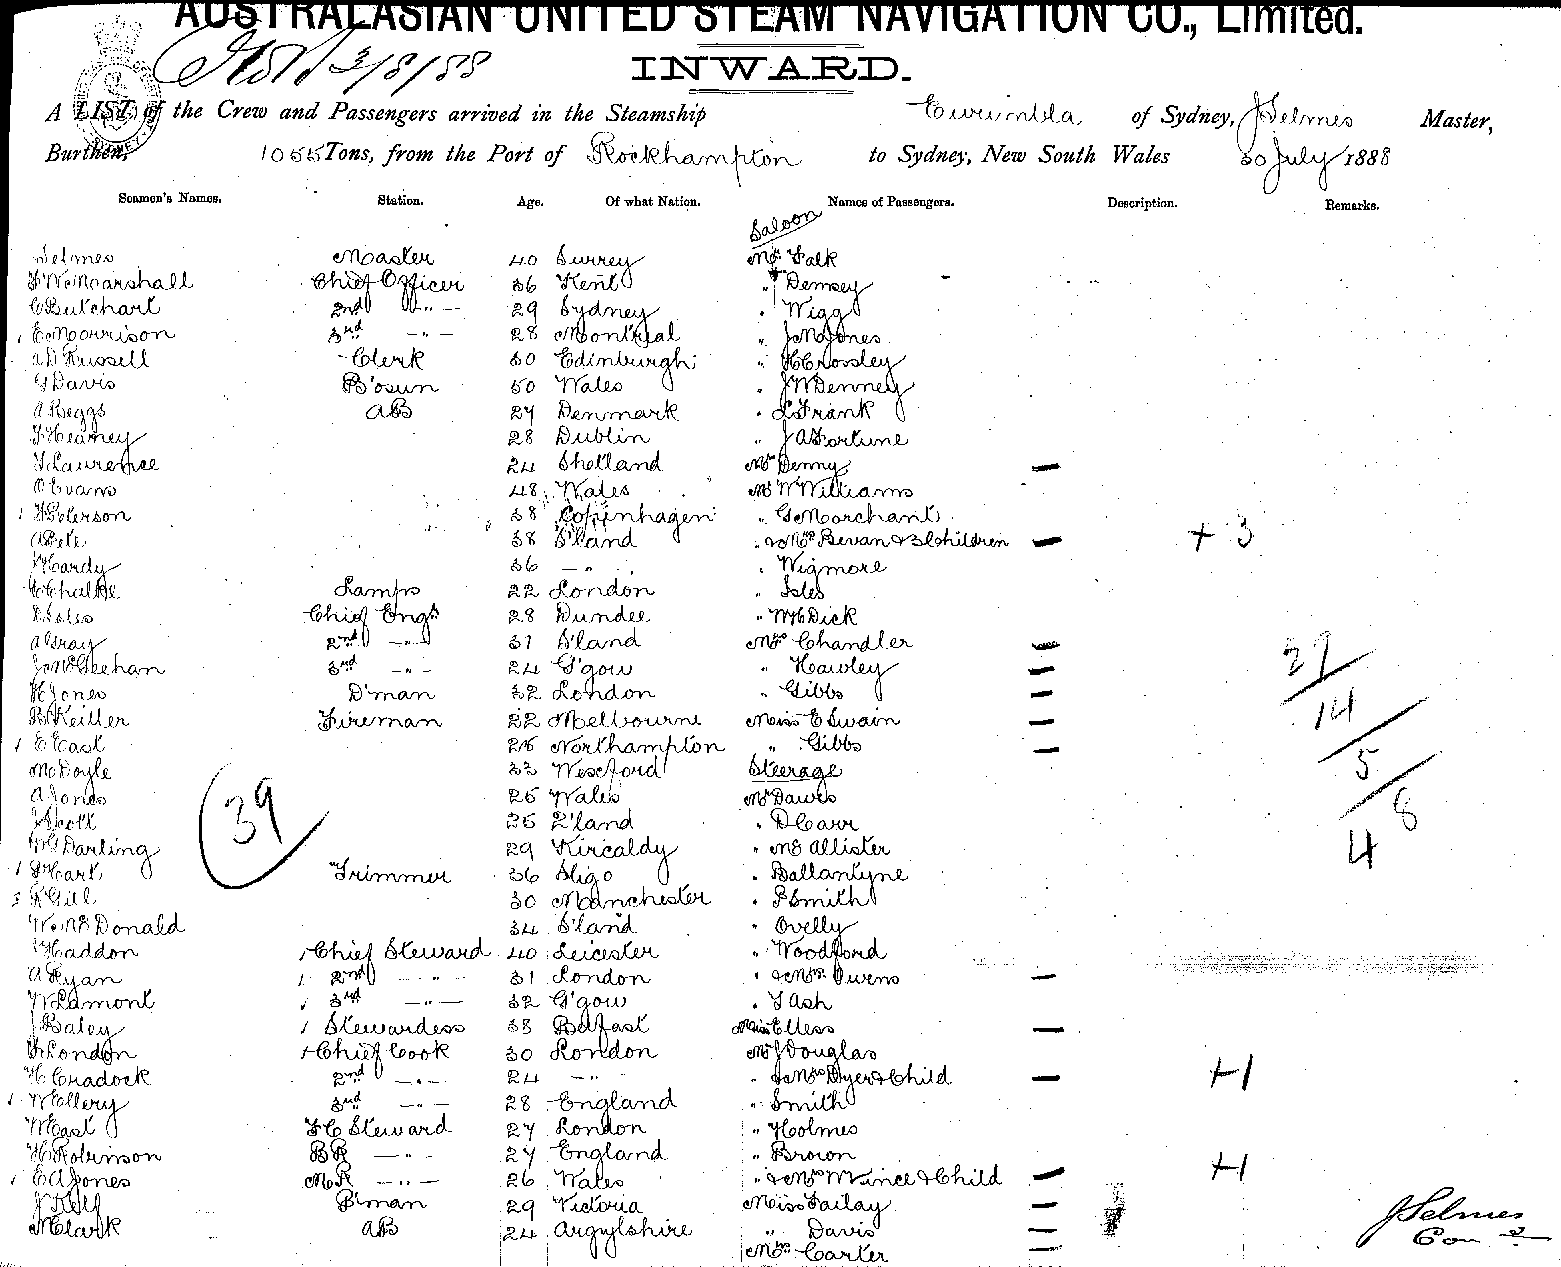 AUSTRALASIAN UNITED STEAM NAVIGATION CO., Limited.
3/8/88
INWARD.
A LIST of the Crew and Passengers arrived in the Steamship Eurimbla of Sydney, J Selmes Master,
Burthen, 1055 Tons, from the Port of Rockhampton to Sydney, New South Wales 30 July 1888
Seamen's Names. Station. Age. Of what Nation. Names of Passengers. Description. Remarks.
Saloon
Selmes Master 40 Surrey Mr Falk
Marshall Chief Officer 36 Kent " Demsey
C Butchart 2nd " 29 Sydney " Wigg
E Morrison 3rd " 28 Montreal " J M Jones
A D Russell Clerk 30 Edinburgh " H Crossley
G Davis B'osun 50 Wales " J W Denney
A Beggs AB 27 Denmark " L Frank
Heaney 28 Dublin " J A Fortune
Laurence 24 Shetland Mrs Denny —
O Evans 48 Wales Mr W Williams
Peterson 38 Copenhagen " G Marchant
A 38 S'land " & Mrs Bevan & 3 Children — + 3
Hardy 36 — " " Wigmore
Lamps 22 London " Isles
Chief Engr 28 Dundee " W H Dick
A Gray 2nd " 31 S'land Mrs Chandler —
J McGeehan 3rd " 24 G'gow " Hawley —
H Jones D'man 32 London " Gibbs —
B Keiller Fireman 22 Melbourne Miss E Swain —
E East 26 Northampton " Gibbs —
M Doyle 33 Wexford Steerage
A Jones 25 Wales Mr Dawes
J Scott 25 " D Carr
Darling 29 Kircaldy " McAllister
Hart Trimmer 36 Sligo " Ballantyne
R Gill 30 Manchester " P Smith
W McDonald 34 S'land " Ovelly
Haddon Chief Steward 40 Leicester " Woodford
A Ryan 2nd " 31 London " & Mrs Owens —
W Lamont 3rd " 32 G'gow " T Ash
J Baley Stewardess 38 Belfast Miss —
London Chief Cook 30 London Mr J Douglas
H Cradock 2nd " 24 — " " & Mrs Dyer & Child — +1
W Ellery 3rd " 28 England " Smith
W East F C Steward 27 London " Holmes
H Robinson BR " 27 England " Brown
E A Jones MR " 26 Wales " & Mrs W Vince & Child — +1
B'man 29 Victoria Miss Failay —
M Clark AB 24 Argylshire " Davis —
Mrs Carter —
39
29
14
5
8
4
J Selmes